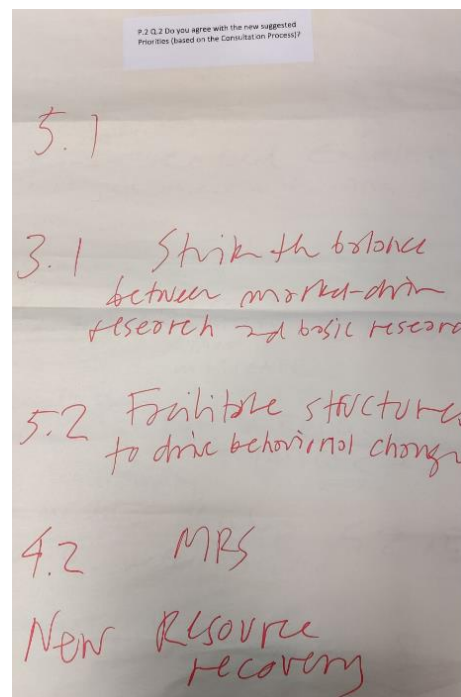 P.2 Q.2 Do you agree with the new suggested
Priorities (based on the Consultation Process)?
5.1
3.1 Strike the balance
between market-driven
research and basic research
5.2 Facilitate structures
to drive behavioral change
4.2 MRS
New Resource
recovery